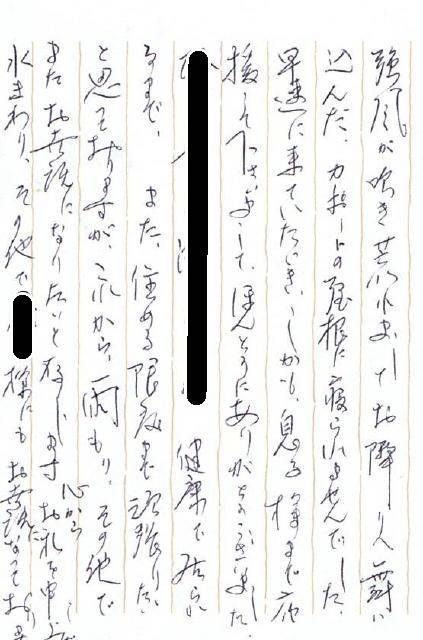 強風が吹き荒れましてお隣りへ舞い
込んだ、カーポートの屋根に寝られませんでした、
早速に来ていただき、しかも、息子様まで応
援して下さいまして、ほんとうにありがとうございました。
健康で居られ
るまで、また、住める限度まで頑張りたい
と思っておりますが、これから、雨もり、その他で
またお世話になりたいと存じます
心からお礼を申し
水まわり、その他で 様にもお世話になっており